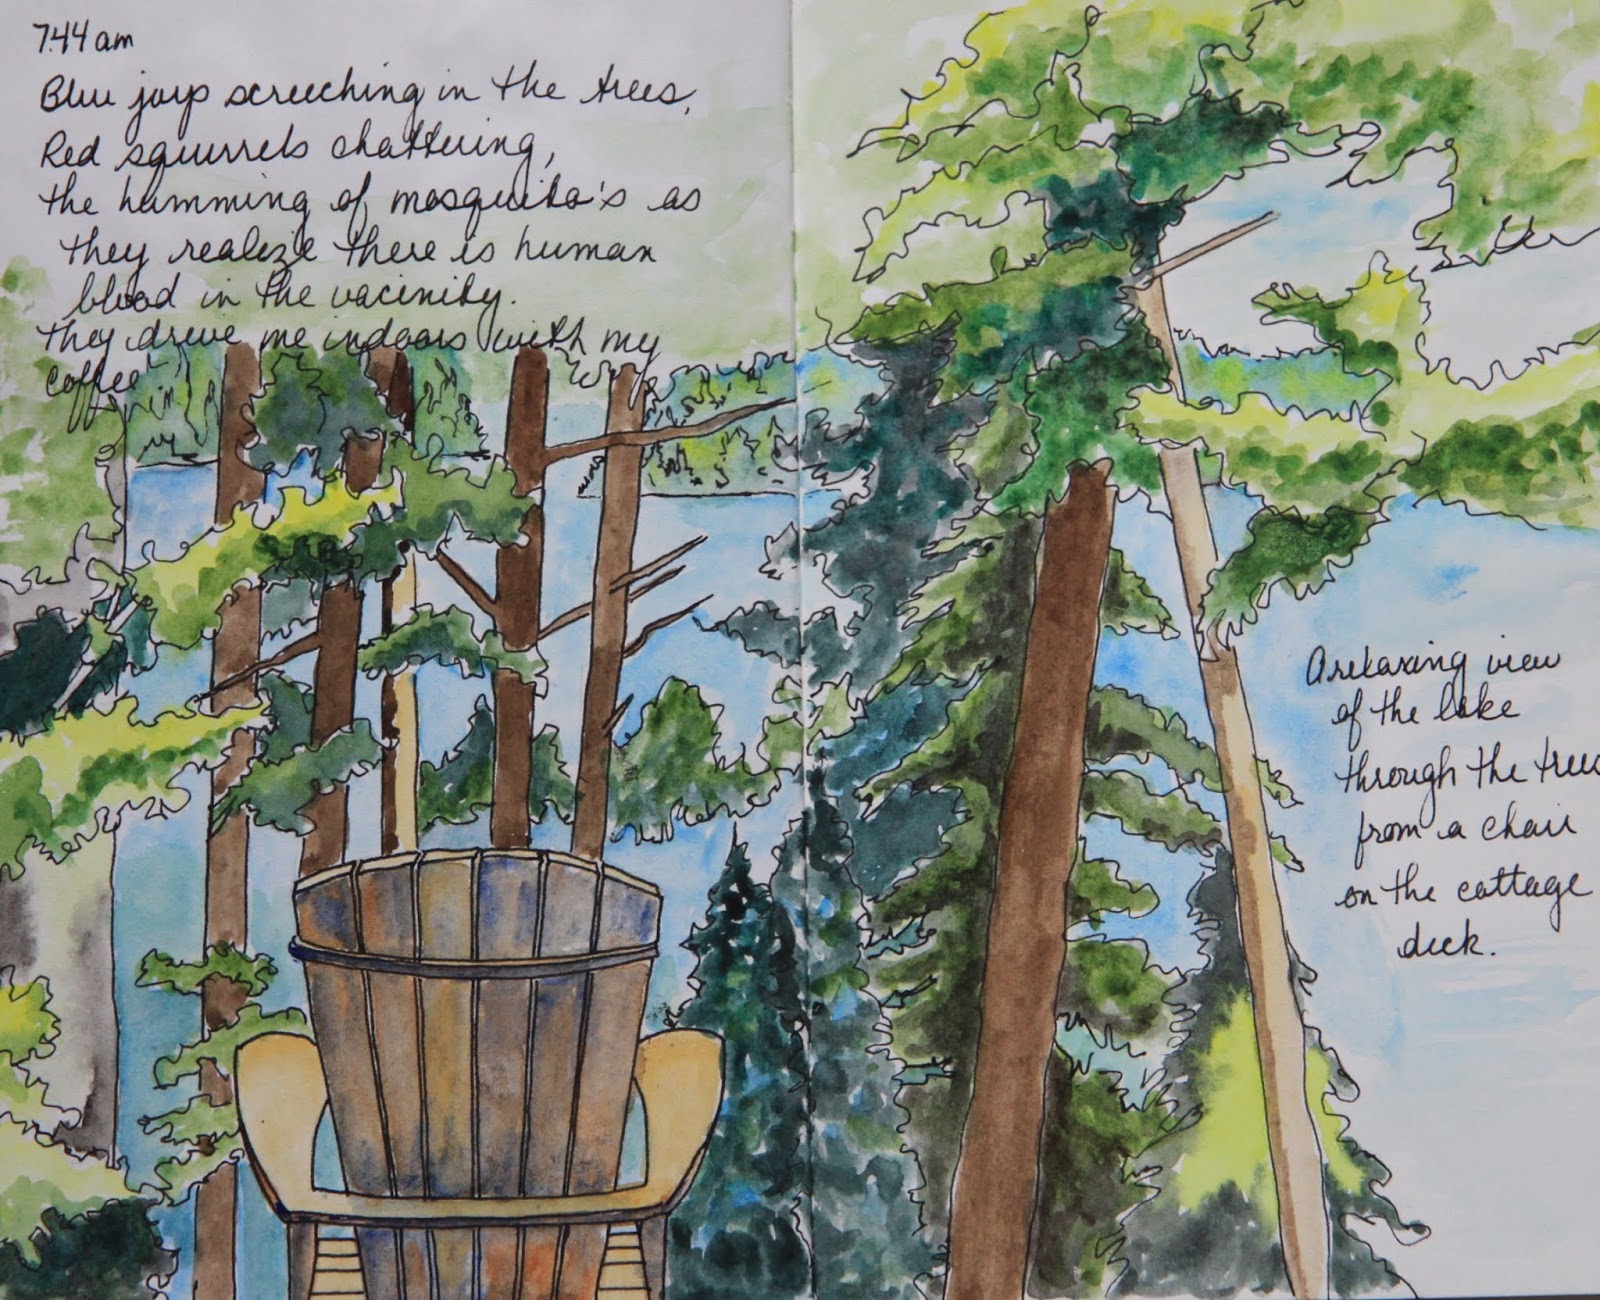 7:44 am
Blue jays screeching in the trees,
Red squirrels chattering,
the humming of mosquito's as
they realize there is human
blood in the vacinity.
they drove me indoors with my
coffee
A relaxing view
of the lake
through the trees
from a chair
on the cottage
deck.